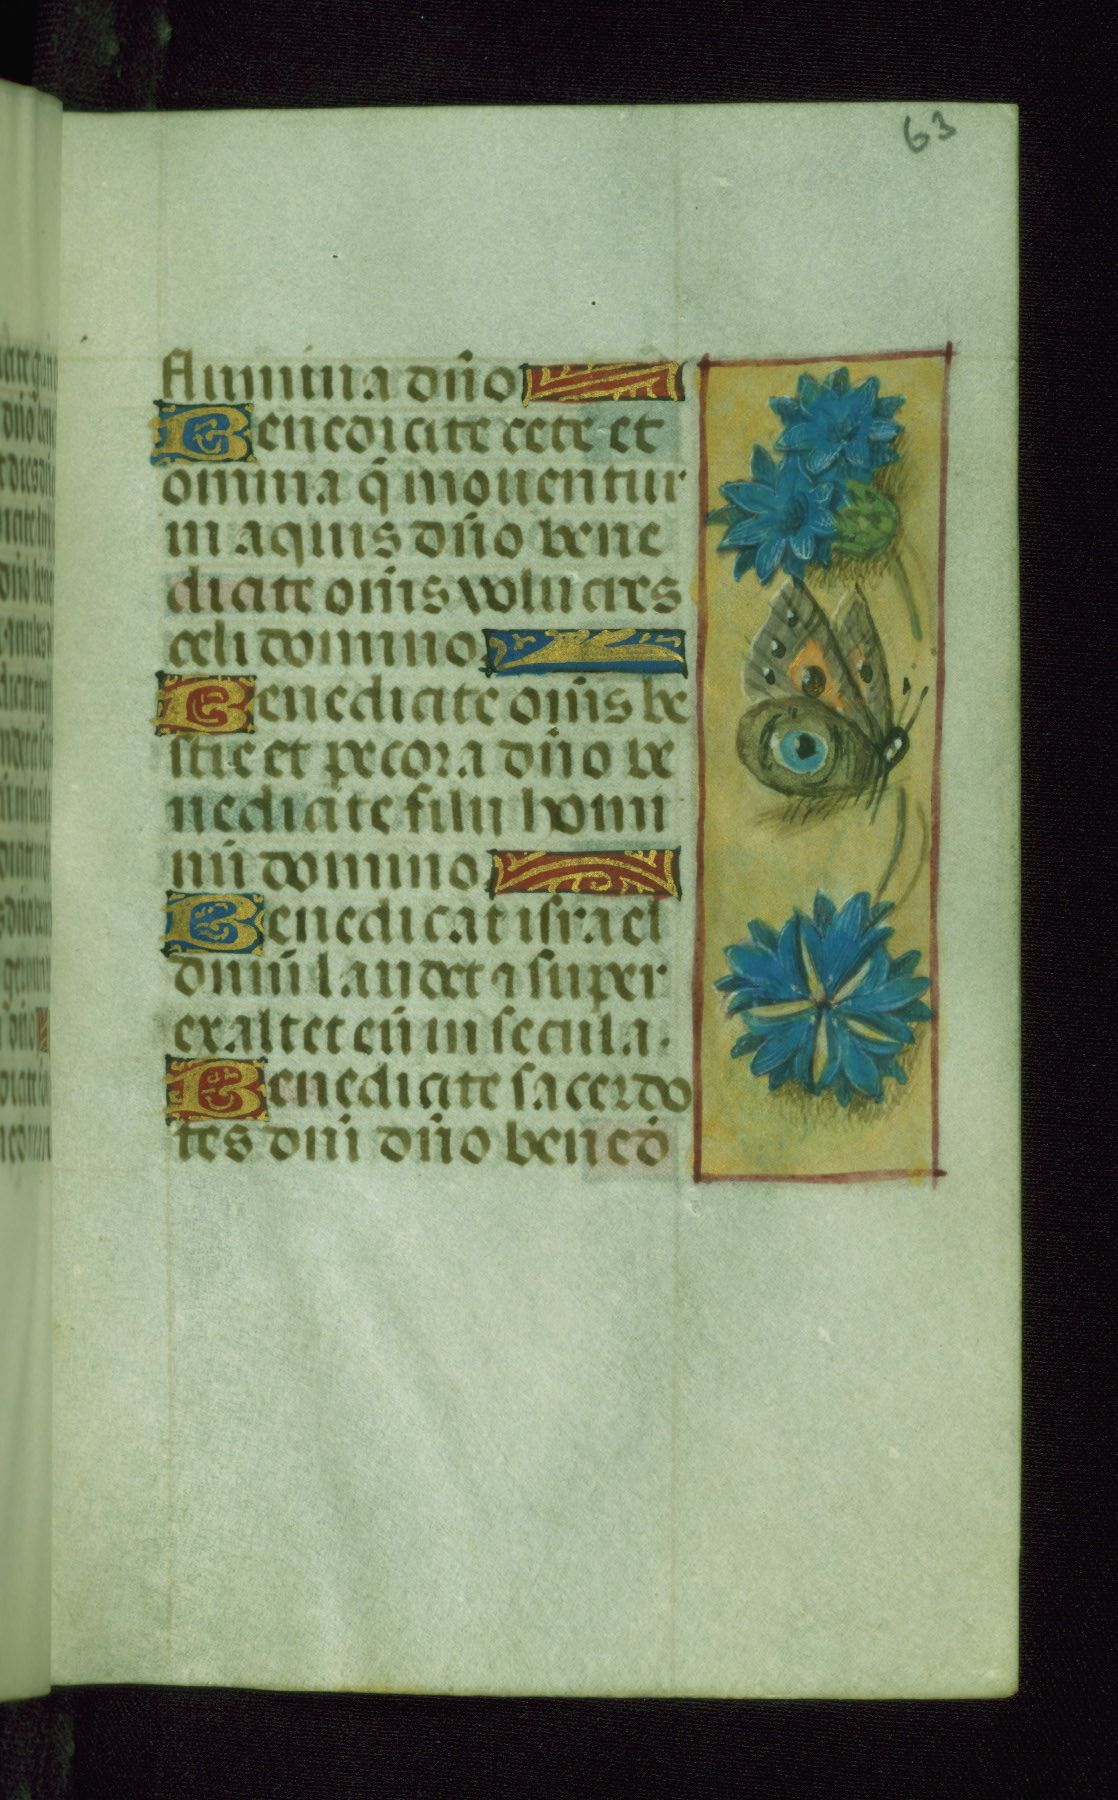 63
flumina dn̄o
Benedicite cete et
omnia q̄ mouentur
in aquis dn̄o bene
dicite om̄s volucres
celi domino.
Benedicite om̄s be
stie et pecora dn̄o be
nedicite filij homi
nū domino.
Benedicat israel
dnm̄ laudet ⁊ super
exaltet eū in secula.
Benedicite sacerdo
tes dnī dn̄o bened̄